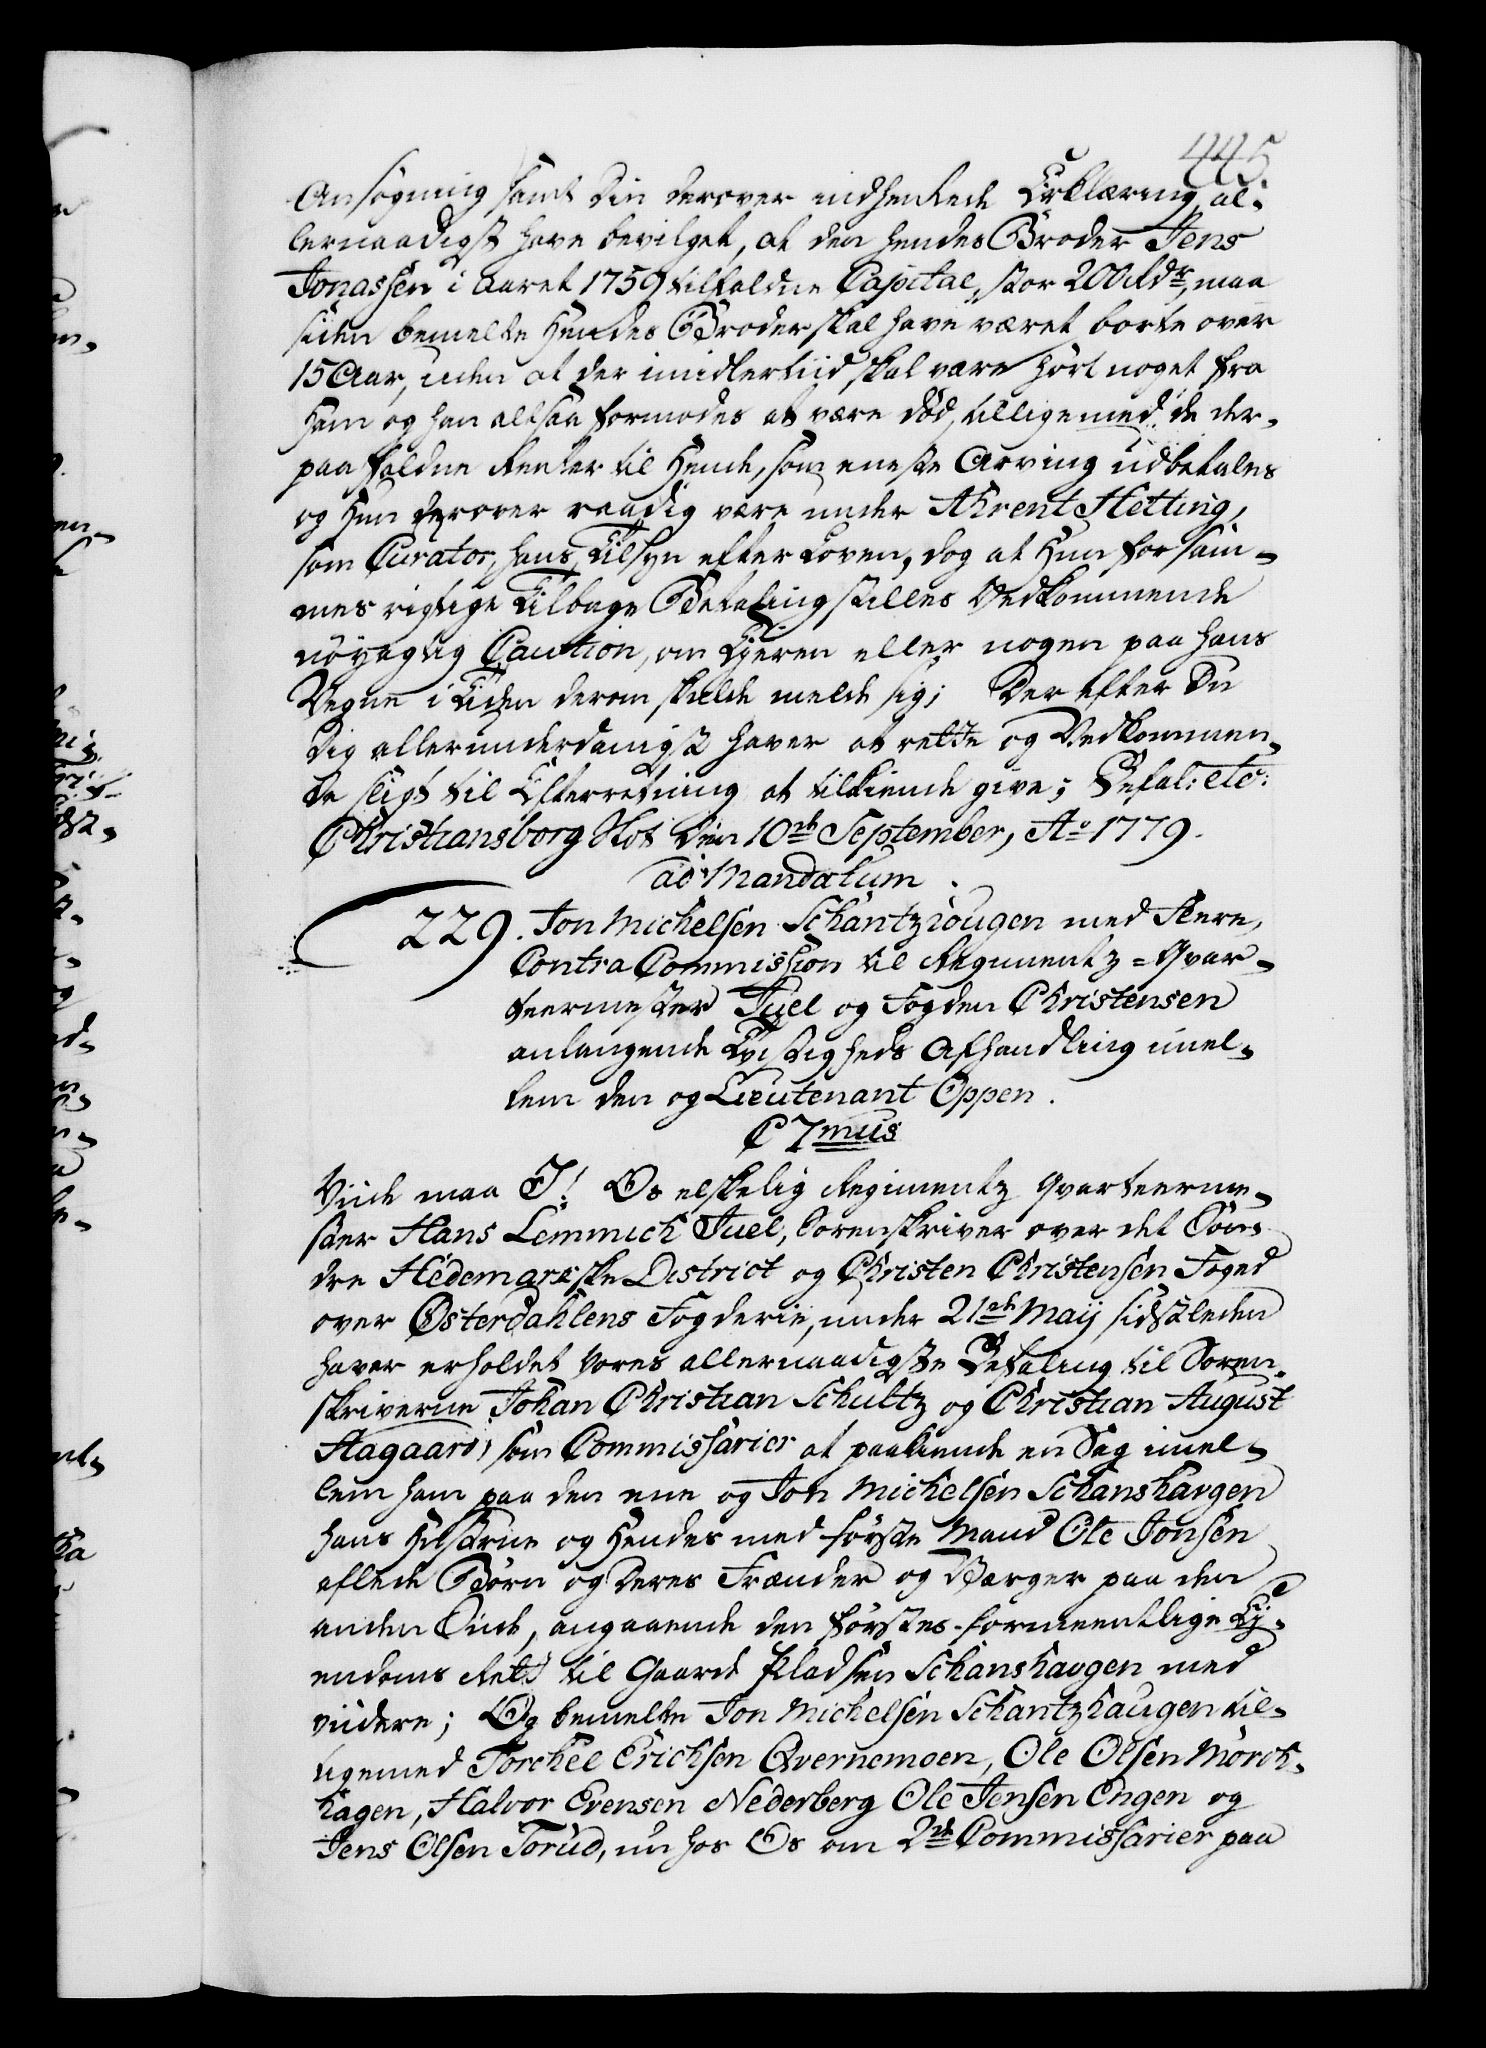 445
Ansøgning samt din derover indhentede Erklæring al-
lernaadigst have bevilget, at den hendes Broder Jens
Jonassen i Aaret 1759 tilfaldne Capital, stor 200 rdr, maa
siden bemelte Hendes Broder skal have været borte over
15 Aar, uden at der imidlertiid skal være hört noget fra
ham og han altsaa formodes at være död, tilligemed de der-
paa faldne Renter til Hende, som eneste Arving udbetales
og Hun derover raadig være under Ahrent Hetting,
som Curator, hans Tilsyn efter Loven, dog at Hun for sam-
mes rigtige Tilbage Betaling stilles Vedkommende
nöyagtig Caution, om Ejeren eller nogen paa hans
Vegne i Tiden derom skulde melde sig; Der efter Du
dig allerunderdanigst haver at rette og Vedkommen-
de sligt til Efterretning at tilkiende give; Befal: etc:
Christiansborg Slot den 10de September, Ao 1779.
ad Mandatum.
229. Jon Michelsen Schantzhougen med flere,
Contra Commission til Regimentz-Qvar-
teermester Juel og Fogden Christensen
anlangende Tvistigheds Afhandling imel-
lem dem og Lieutenant Oppen.
C 7mus
Viide maa I! Os elskelig Regimentz Qvarteerme-
ster Hans Lemmich Juel, Sorenskriver over det Søn-
dre Hedemarkske District og Christen Christensen Foged
over Østerdahlens Fogderie, under 21de Maij sidstleden
haver erholdet Vores allernaadigste Befaling til Soren-
skriverne Johan Christian Schultz og Christian August
Hagaard, som Commissarier at paakiende en Sag imel-
lem ham paa den ene og Jon Michelsen Schanshavgen
hans Hustrue og Hendes med første Mand Ole Jonsen
aflede Börn og Deres Frænder og Værger paa den
anden Side, angaaende den förstes formeentlige Ej-
endoms Rett til Gaarde Pladsen Schanshavgen med
viidere; Og bemelte Jon Michelsen Schantzhaugen til-
ligemed Torchel Erichsen Qvernemoen, Ole Olsen Mörch-
hagen, Halvor Evensen Nederberg Ole Jensen Engen og
Jens Olsen Torud, nu hos Os om 2de Commissarier paa